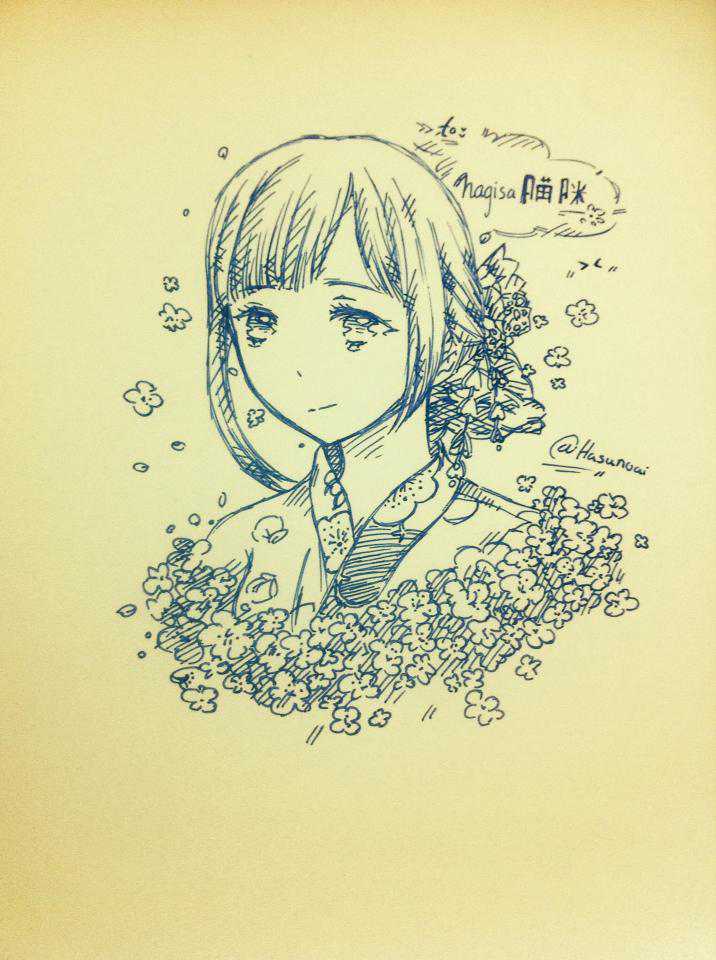 to:
nagisa 喵咪
"> <"
@Hasunoai